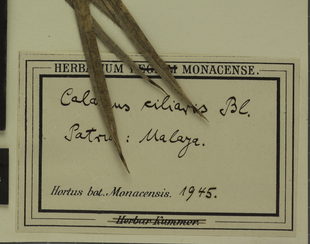 HERBARIUM REGIUM MONACENSE.
Calamus ciliaris Bl.
Patria: Malaya.
Hortus bot. Monacensis. 1945.
Herbar Kummer.